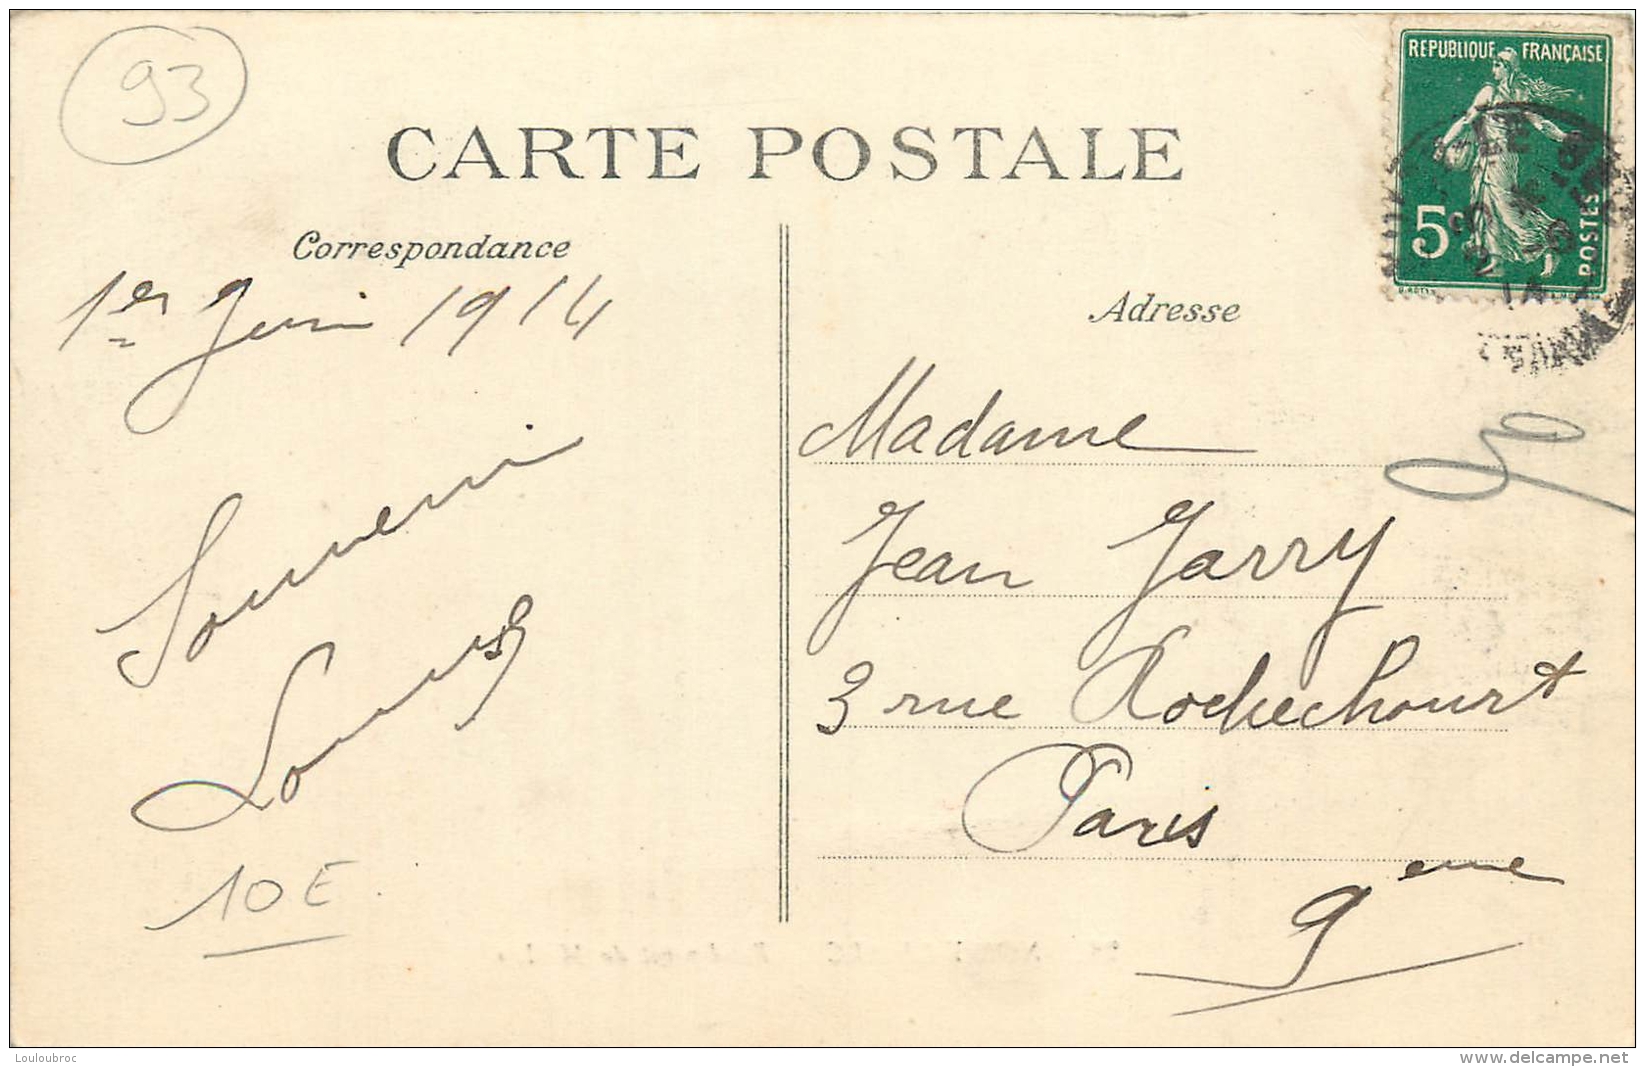 93
CARTE POSTALE
REPUBLIQUE FRANÇAISE
5c
POSTES
Correspondance
1er Juin 1914
Souvenir
Adresse
Madame
Jean Jarry
3 rue Rochechouart
Paris
9eme
10 E
Louloubroc
www.delcampe.net